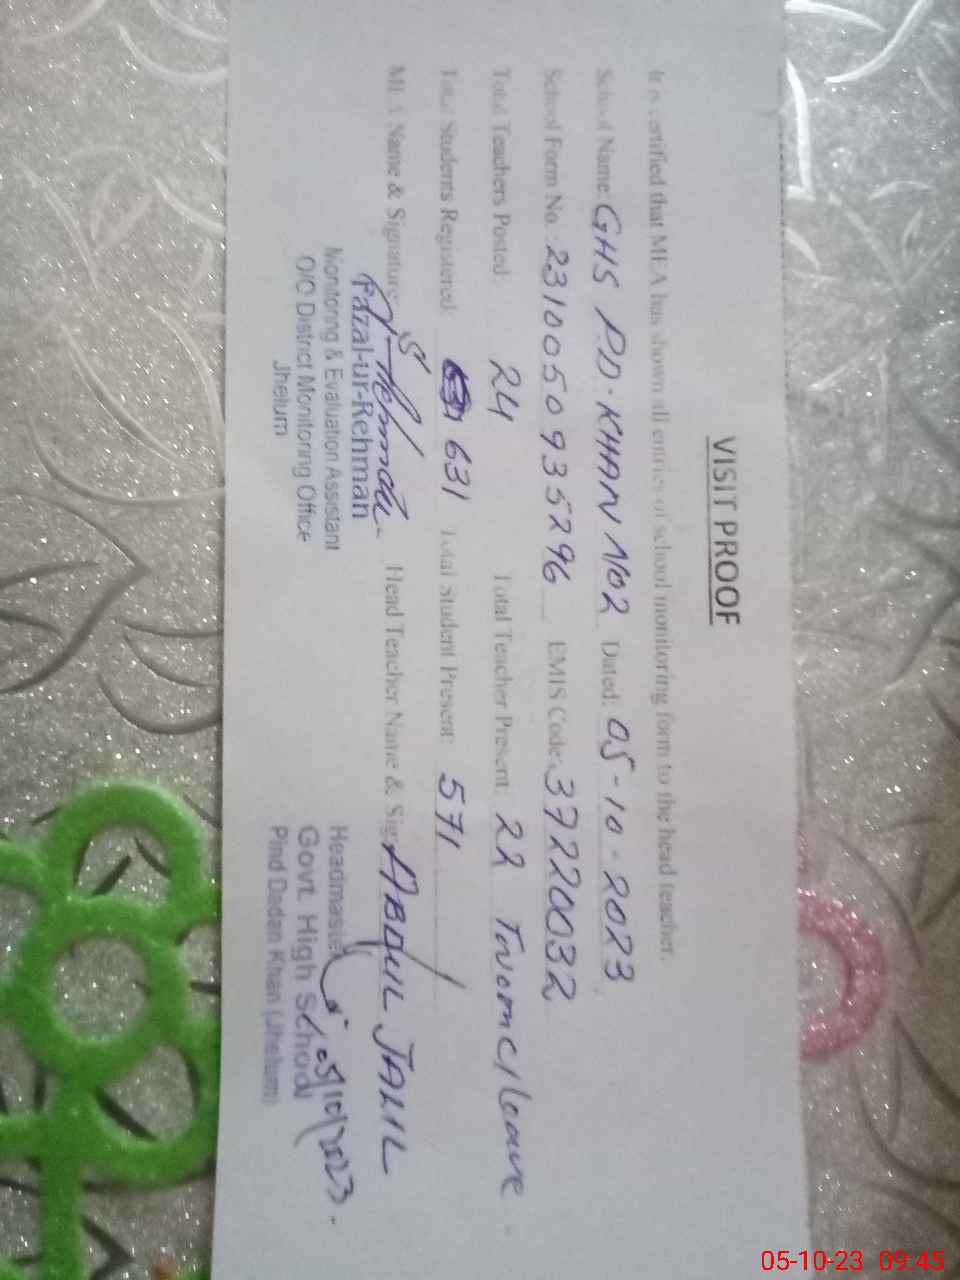 VISIT PROOF
It is certified that MEA has shown all entries of school monitoring form to the head teacher.
School Name: GHS P.D. KHAN No2 Dated: 05-10-2023
School Form No. 2310050935296 EMIS Code: 37220032
Total Teachers Posted: 24 Total Teacher Present: 22 Two on c/leave -
Total Students Registered: 631 Total Student Present: 571
MEA Name & Signature: Head Teacher Name & Sig: ABDUL JALIL
Fazal-ur-Rehman
Monitoring & Evaluation Assistant
O/O District Monitoring Office
Jhelum
Headmaster
Govt. High School
Pind Dadan Khan (Jhelum)
05/10/2023-
05-10-23 09:45